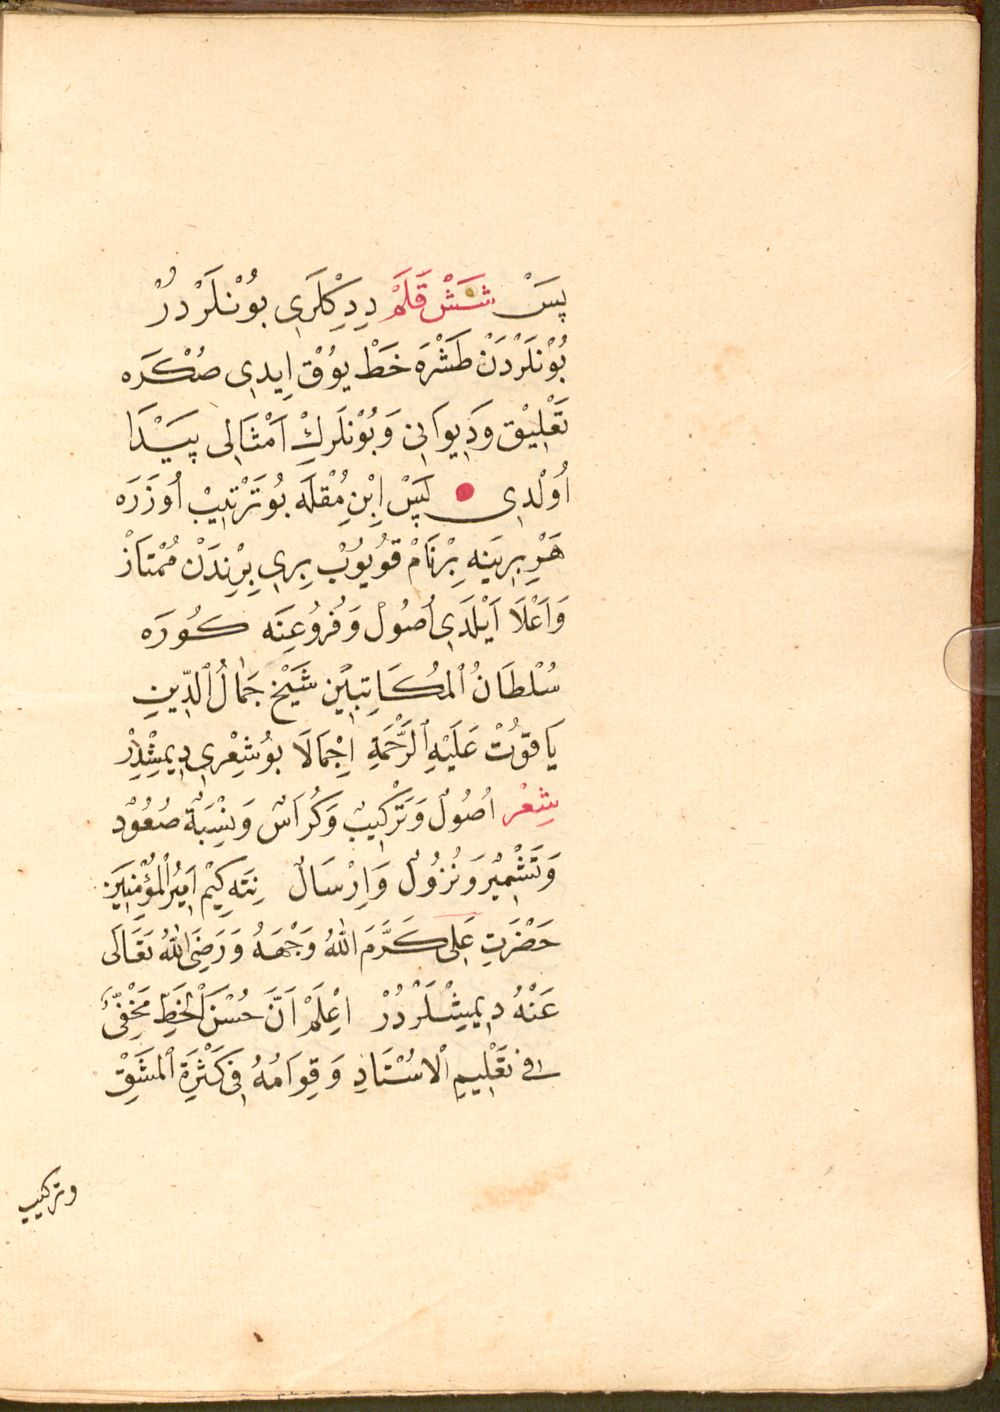 پَسْ شَشْ قَلَمْ دِدِكْلَرِى بُوْنلَرْ دُرْ
بُوْنلَرْدَنْ طَشْرَه خَطْ يُوْقْ اِيدِى صُكْرَه
تَعْلِيْق وَدِيوَانِى وَبُوْنلَرِكْ اَمْثَالِى پَيْدَا
اُوْلْدِى پَسْ اِبْنِ مُقْلَه بُوتَرْتِيبْ اُوزَرَه
هَرْ بِرِينَه بِرْنَامْ قُويُوْبْ بِرِى بِرِنْدَنْ مُمْتَازْ
وَاَعْلَا اَيْلَدِى اُصُولْ وَفُرُوعِنَه كُورَه
سُلْطَانُ الْمُكَاتِبِيْن شَيْخ جَمَالُ الدِّينِ
يَاقُوْتْ عَلَيْهِ الرَّحْمَةِ اِجْمَالَا بُوشِعْرِى دِيمِشْدِرْ
شِعْر اُصُولٌ وَتَرْكِيبٌ وَكُرَاسٌ وَنِسْبَةٌ صُعُوْد
وَتَشْمِيْرٌ وَنُزُولٌ وَاِرْسَالٌ نِتَه كِيْم اَمِيْرُ الْمُؤْمِنِيَن
حَضْرَتِ عَلِى كَرَّمَ اللّٰهُ وَجْهَهُ وَرَضِىَ اللّٰهُ تَعَالَى
عَنْهُ دِيمِشْلَرْدُرْ اِعْلَمْ اَنَّ حُسْنَ الْخَطِّ مَخْفِىٌّ
فِى تَعْلِيمِ الْاُسْتَادِ وَقِوَامُهُ فِى كَثْرَةِ الْمَشْقِ
وتركيب